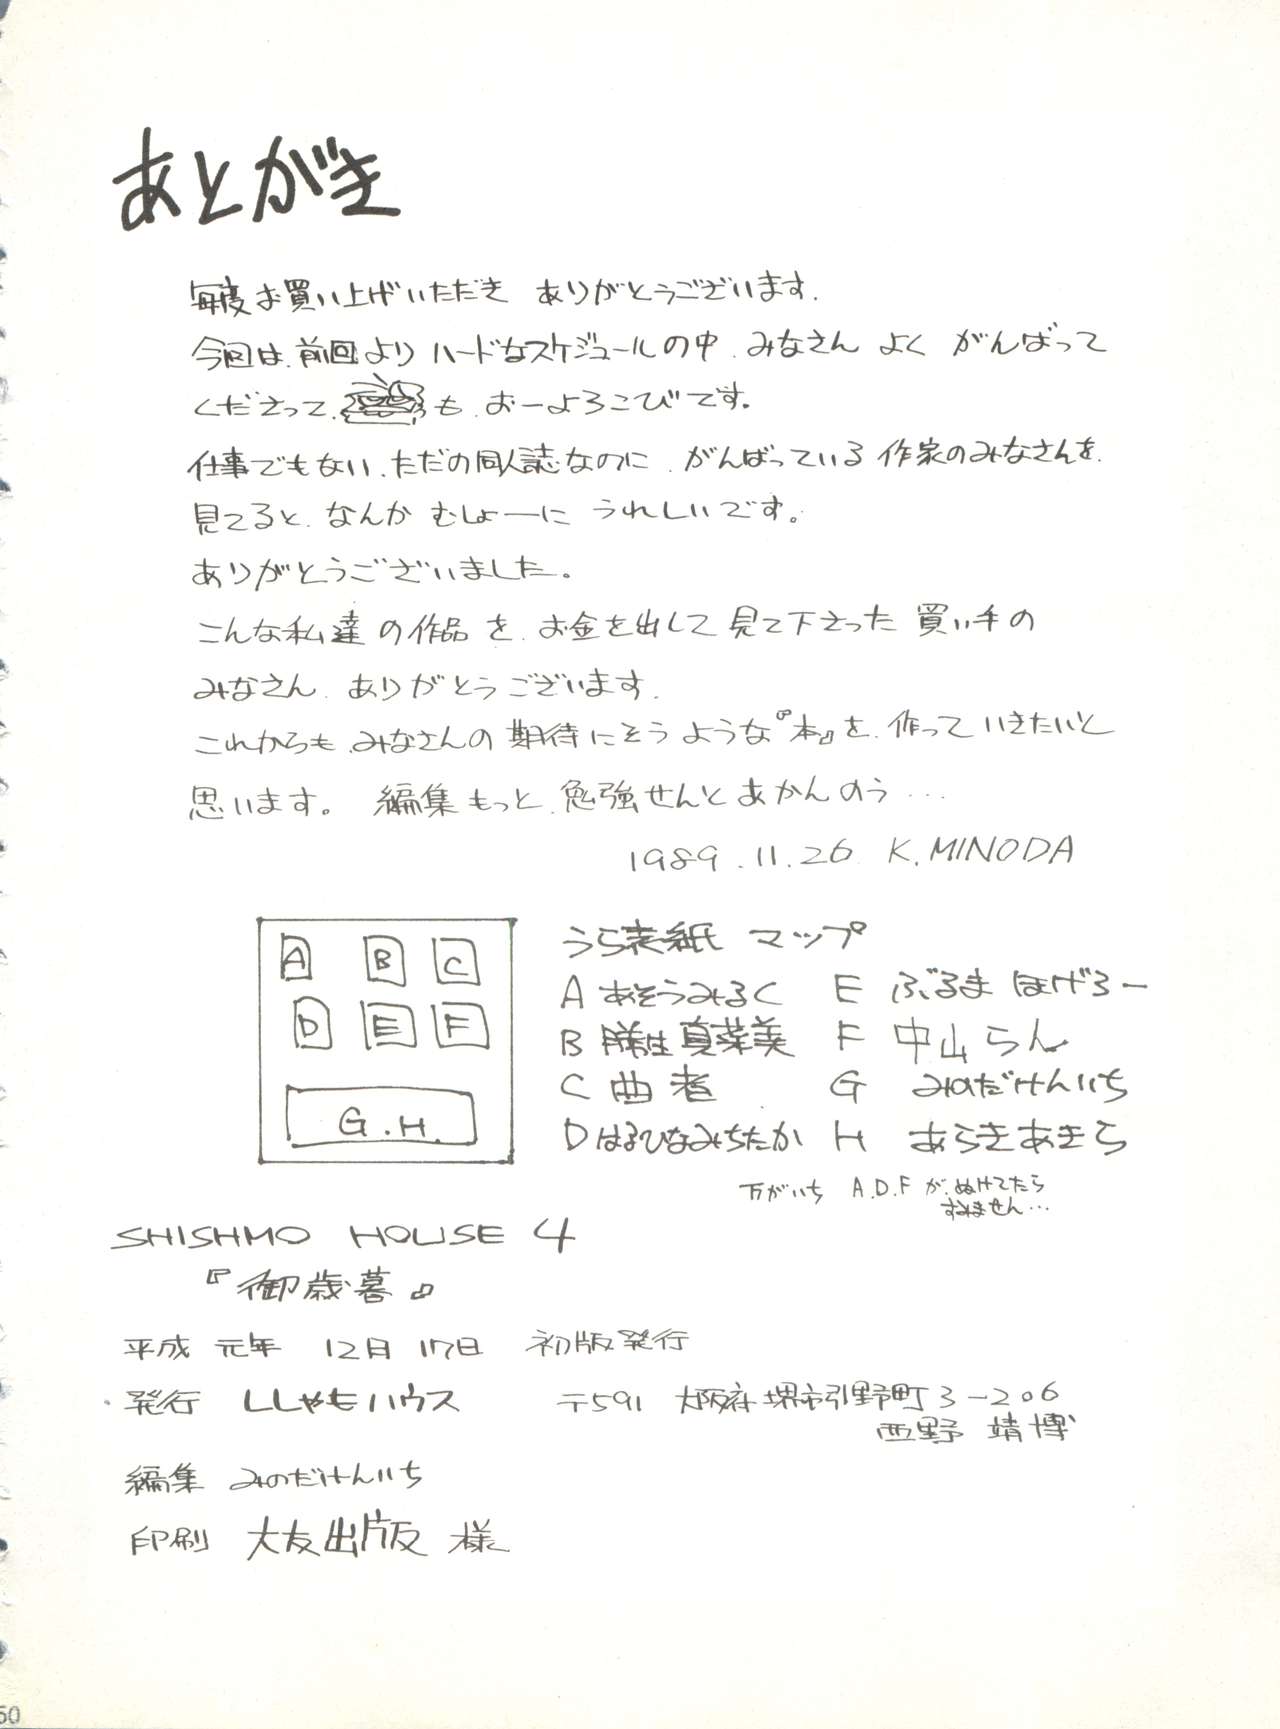 あとがき
毎度お買い上げいただき ありがとうございます.
今回は.前回より ハードなスケジュールの中.みなさん よく がんばって
くださって. も.おーよろこびです。
仕事でもない.ただの同人誌なのに.がんばっている 作家のみなさんを.
見てると.なんか むしょーに うれしいです。
ありがとうございました。
こんな私達の作品を.お金を出して見て下さった 買い手の
みなさん.ありがとうございます.
これからも.みなさんの期待にそうような『本』を.作っていきたいと
思います。 編集もっと.勉強せんとあかんのう...
1989.11.26 K.MINODA
A B C
D E F
G.H.
うら表紙 マップ
A あそうみるく E ぶるま ほげろー
B 勝生真菜美 F 中山らん
C 曲者 G みのだけんいち
D はるひなみちたか H あらきあきら
万がいち A.D.Fが.ぬけてたら
すみません...
SHISHMO HOUSE 4
『御歳暮』
平成 元年 12月17日 初版発行
発行 ししゃもハウス 〒591 大阪府堺市引野町3-206
西野 靖博
編集 みのだけんいち
印刷 大友出版 様
50